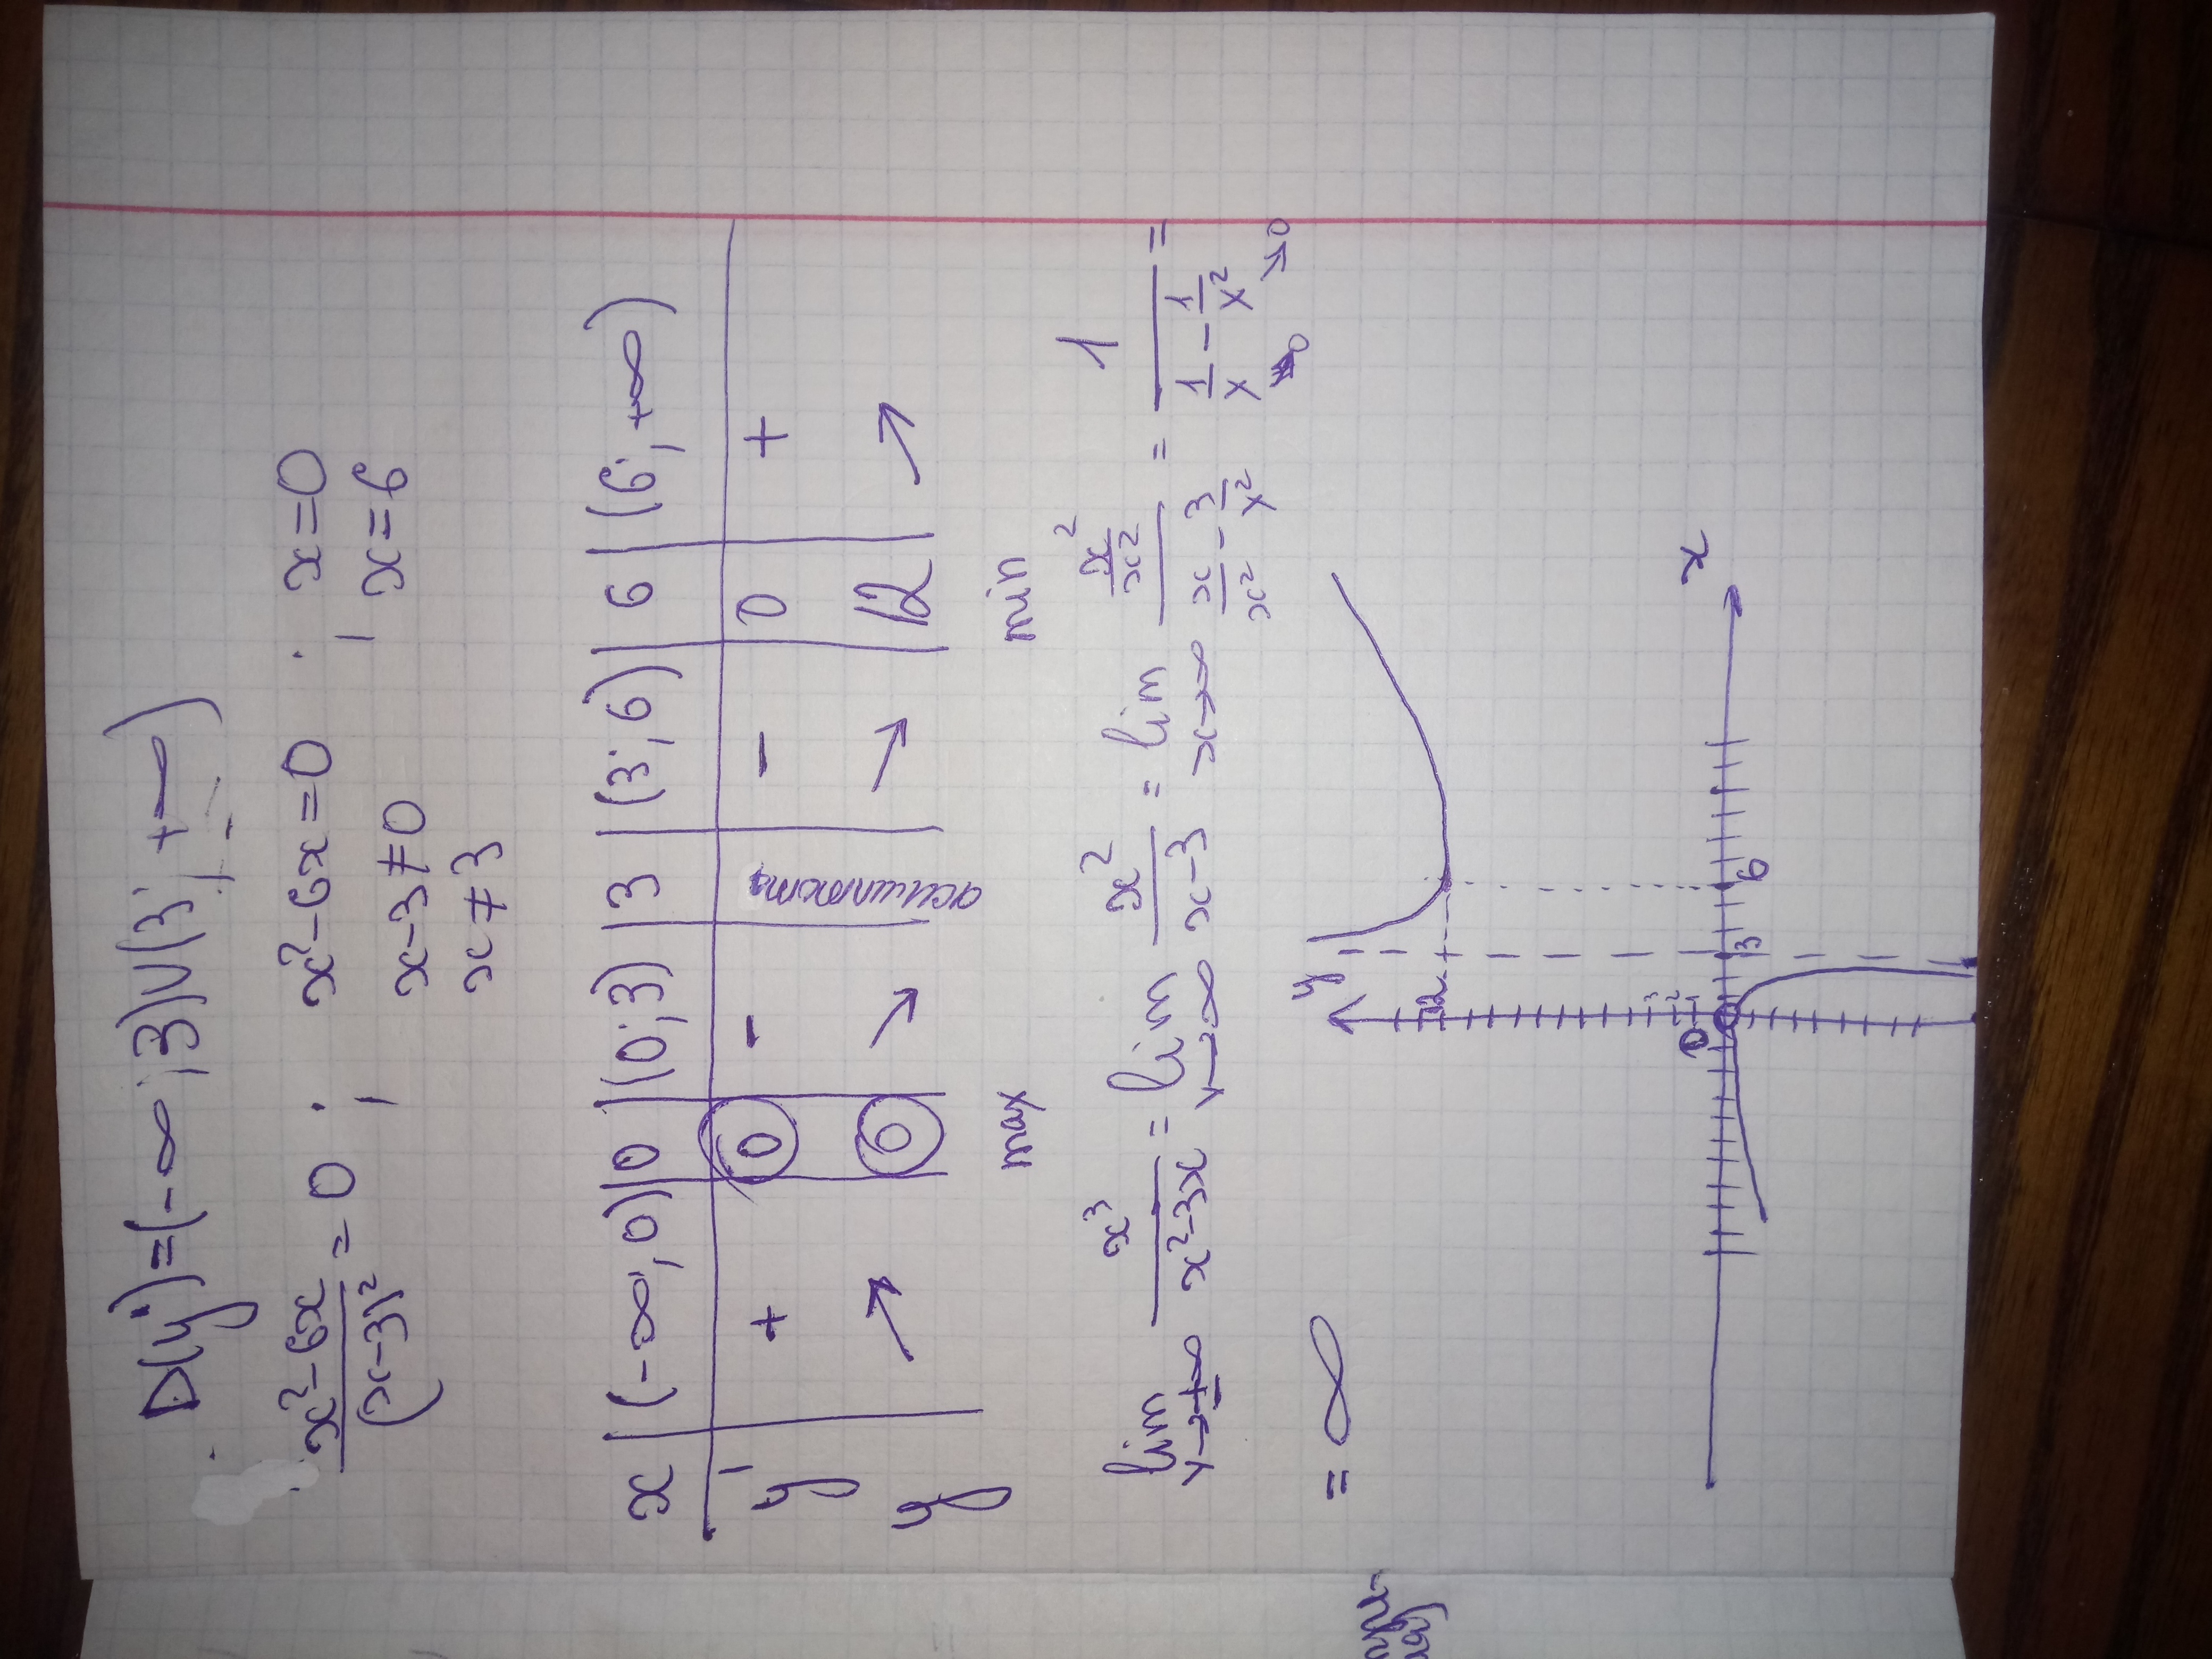 D(y') = (-∞; 3)∪(3; +∞)
(x²-6x)/(x-3)² = 0 ; x²-6x=0 ; x=0
x-3≠0 ; x=6
x≠3
x | (-∞; 0) | 0 | (0; 3) | 3 | (3; 6) | 6 | (6; +∞)
y' | + | 0 | - | асимптота | - | 0 | +
y | ↗ | 0 | ↘ | | ↘ | 12 | ↗
max min
lim y→±∞ x³/(x²-3x) = lim y→∞ x²/(x-3) = lim x→∞ (x²/x²)/(x/x² - 3/x²) = 1/(1/x - 1/x²) =
→0 →0
= ∞
y
12
3
2
1
0 3 6 x